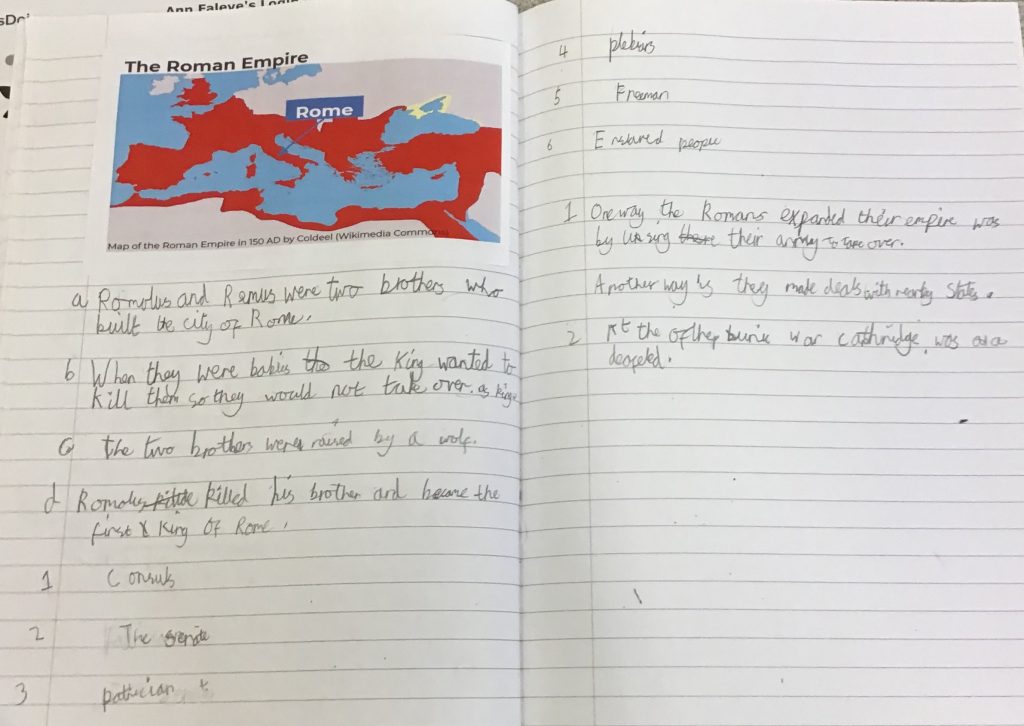 Ann Faleye's
The Roman Empire
Rome
Map of the Roman Empire in 150 AD by Coldeel (Wikimedia Commons)
a Romolus and Remus were two brothers who
built the city of Rome.
b When they were babies the king wanted to
kill them so they would not take over. as king.
c the two brothers were raised by a wolf.
d Romolus killed his brother and became the
first king of Rome.
1 Consuls
2 The senate
3 patrician
4 plebians
5 Freeman
6 Enslaved people
1 One way the Romans expanded their empire was
by using their army to take over.
Another way is they make deals with nearby states.
2 At the of the punic war cathridge was